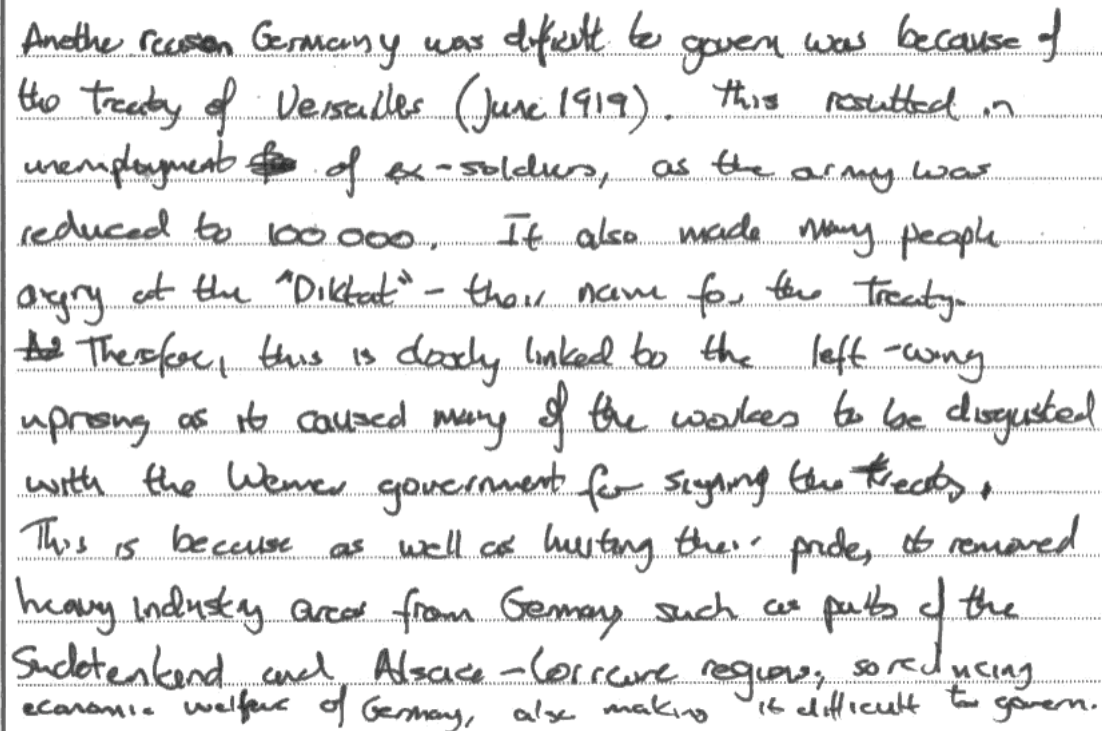 Another reason Germany was difficult to govern was because of
the Treaty of Versailles (June 1919). This resulted in
unemployment of ex-soldiers, as the army was
reduced to 100 000. It also made many people
angry at the "Diktat" - their name for the Treaty.
Therefore, this is closely linked to the left-wing
uprising as it caused many of the workers to be disgusted
with the Weimar government for signing the treaty.
This is because as well as hurting their pride, it removed
heavy industry areas from Germany such as parts of the
Sudetenland and Alsace-Lorraine regions, so reducing
economic welfare of Germany, also making it difficult to govern.